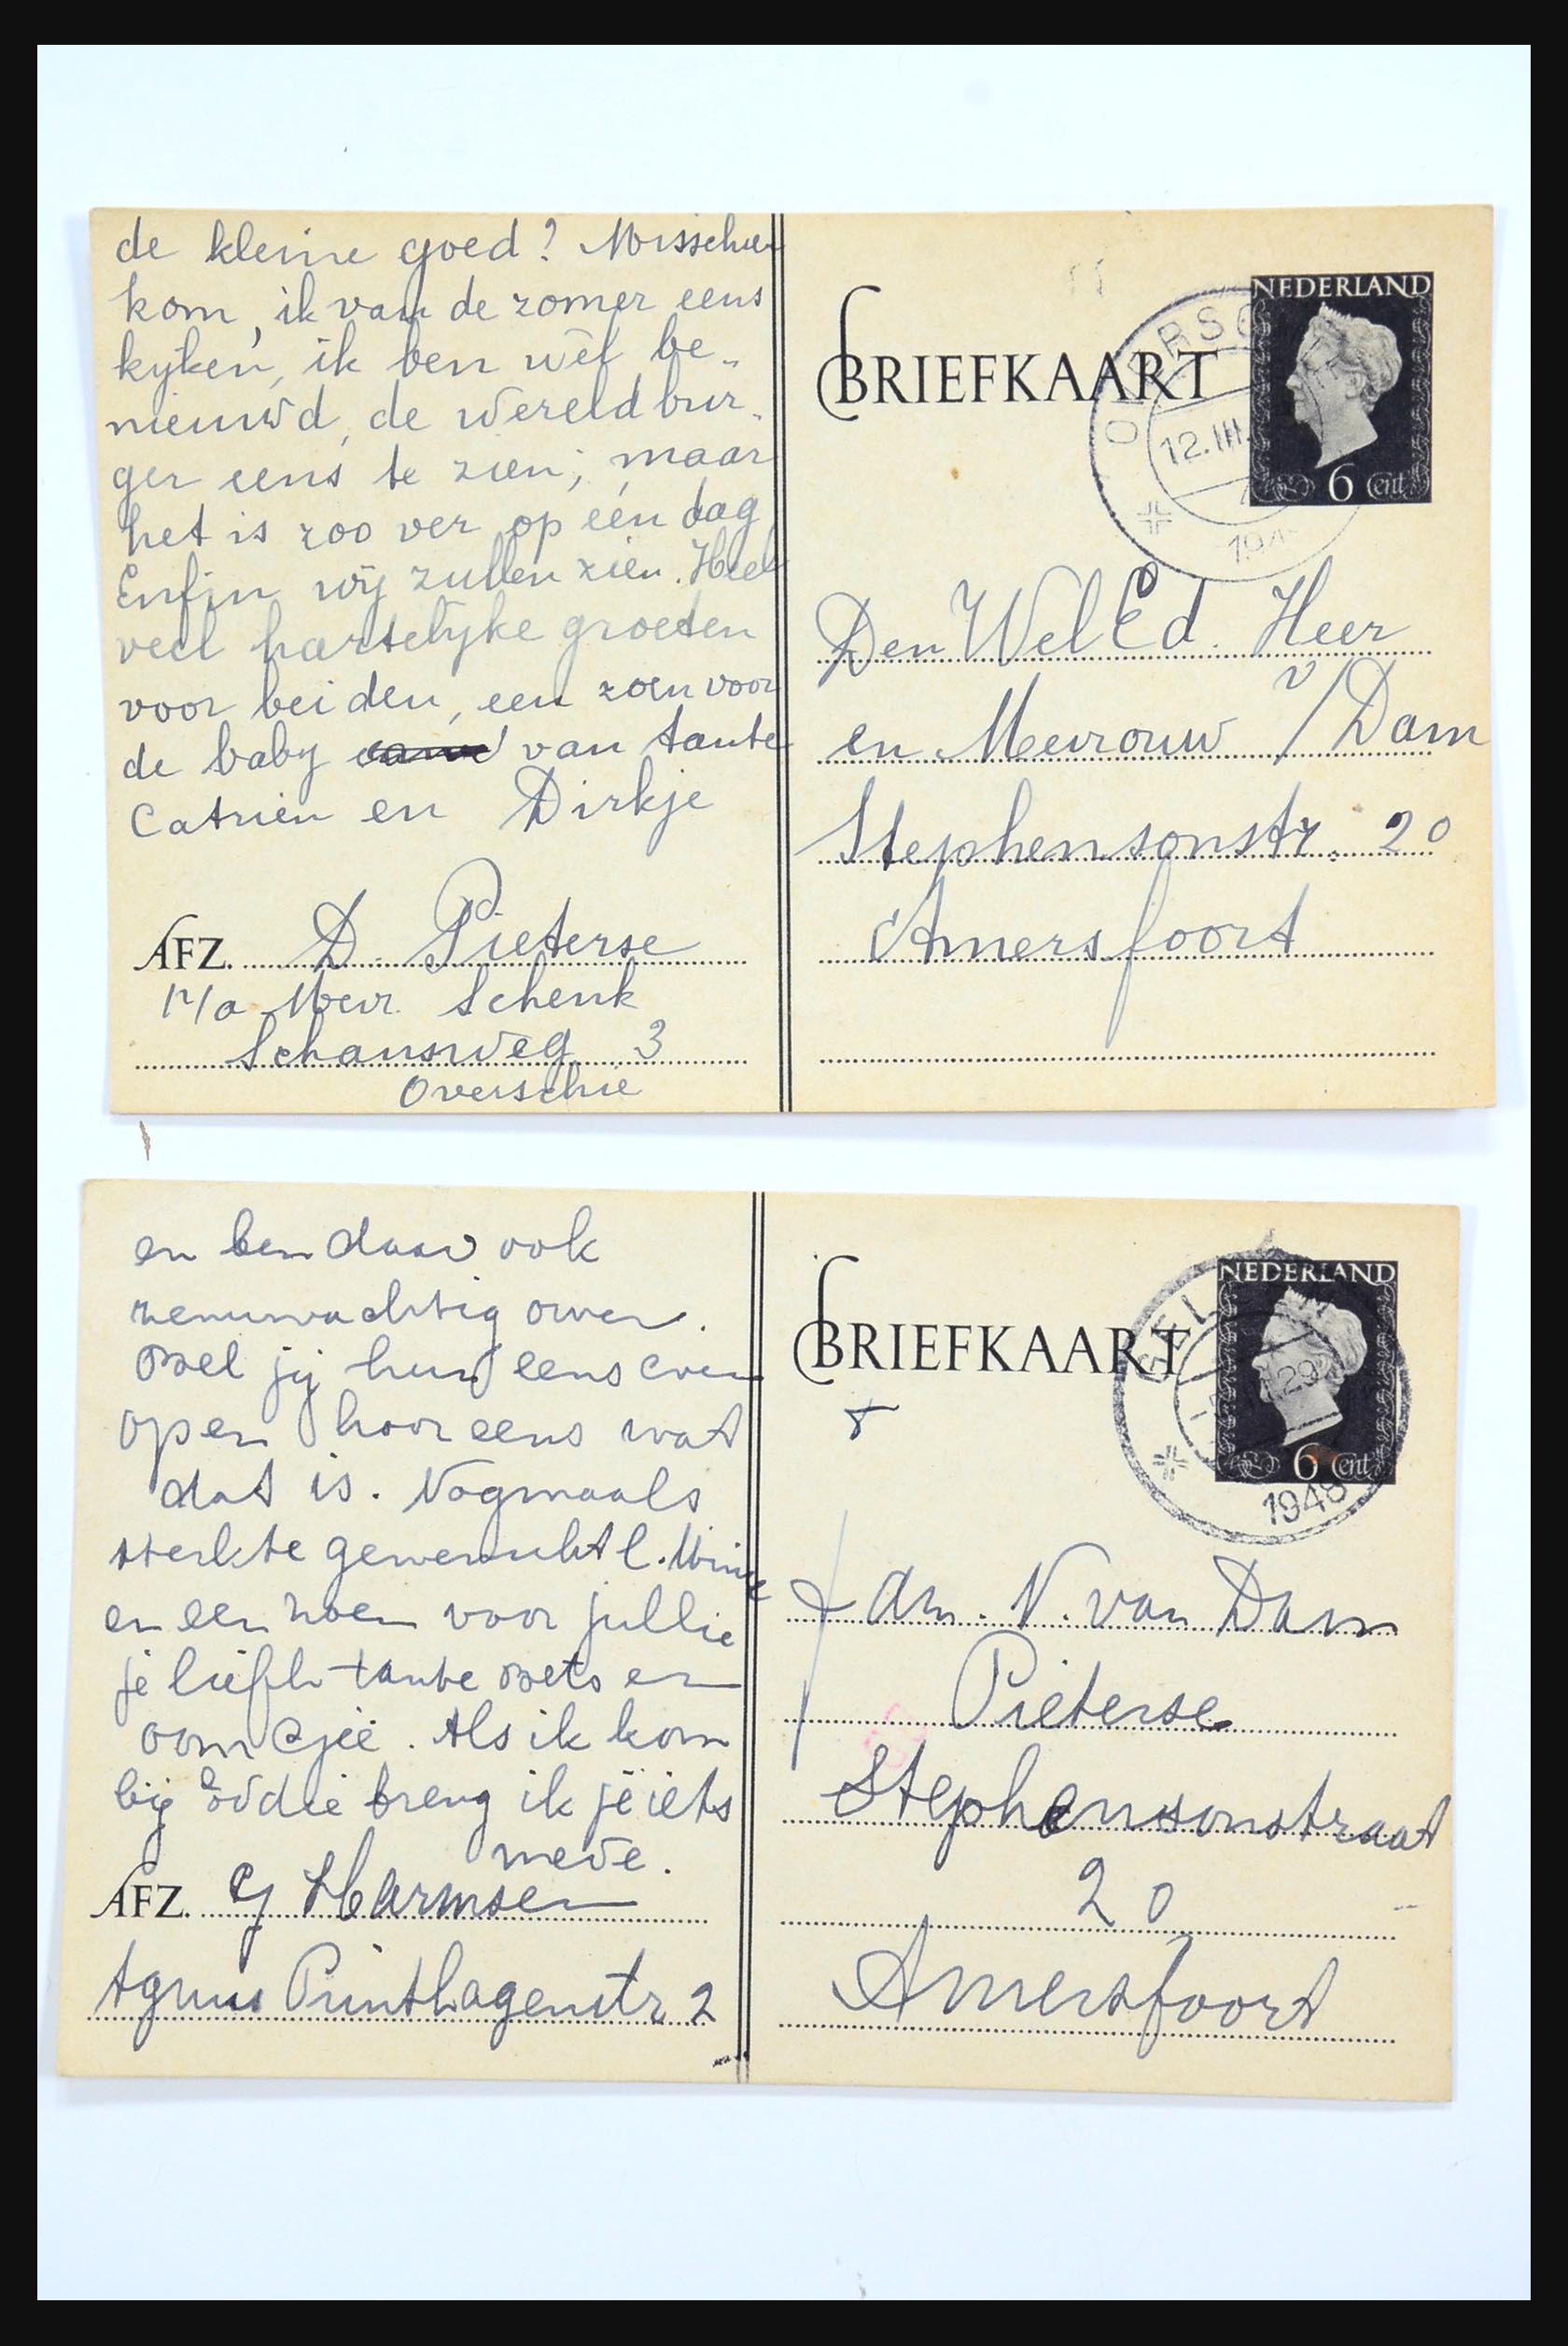 de kleine goed? Misschien
kom, ik van de zomer eens
kijken, ik ben wel be-
nieuwd, de wereldbur-
ger eens te zien; maar
het is zoo ver op één dag
Enfin wij zullen zien. Heel
veel hartelijke groeten
voor beiden, een zoen voor
de baby van tante
Catrien en Dirkje
AFZ. D. Pieterse
p/a Mevr. Schenk
Schansweg 3
Overschie
BRIEFKAART
NEDERLAND
6 Cent
12.III.
194
Den WelEd. Heer
en Mevrouw v/Dam
Stephensonstr. 20
Amersfoort
en ben daar ook
zenuwachtig over.
Bel jij hun eens even
open hoor eens wat
dat is. Nogmaals
sterkte gewenscht l.
en een zoen voor jullie
je liefh tante Bets en
oom . Als ik kom
bij breng ik je iets
mede.
AFZ. G Harmsen
2
BRIEFKAART
NEDERLAND
6 Cent
29
1948
N. van Dam
Pieterse
Stephensonstraat
20
Amersfoort